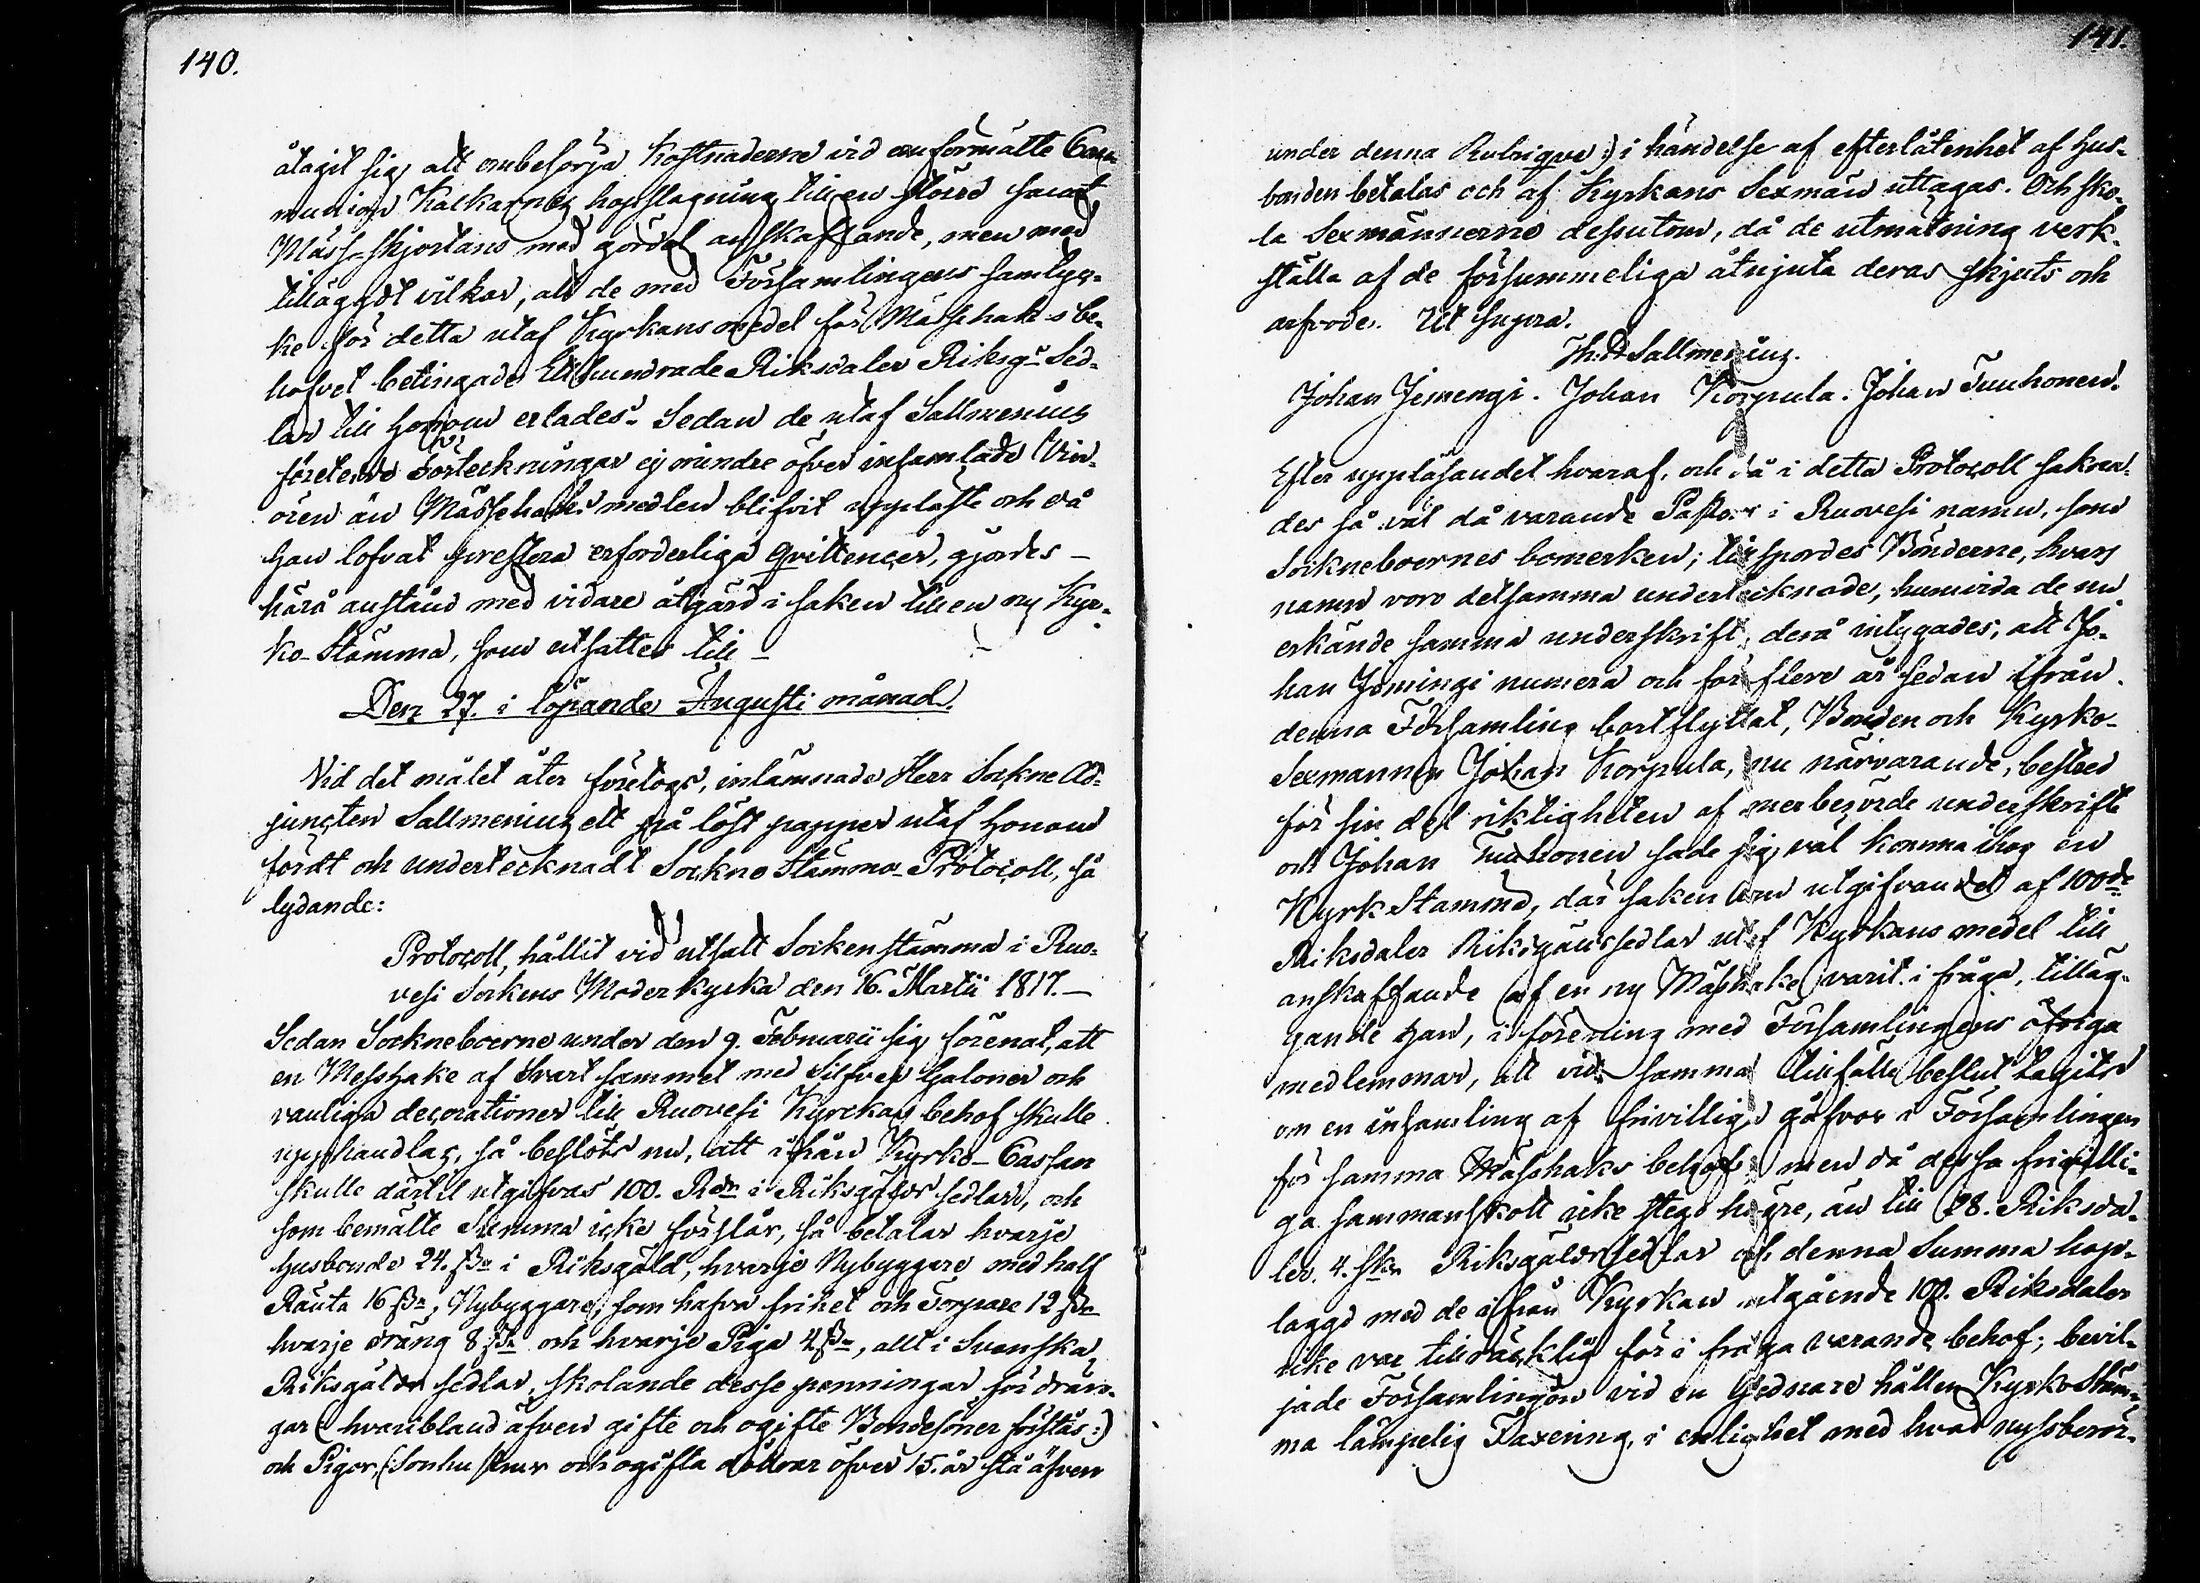 140.
åtagit sig att ombesörja Kostnaderne vid omförmälte Com-
munion Kalkarnes hopslagning till en större samt
Mäss-skjortans med gördel anskaffande, men med
tillägdt vilkor, att de med Församlingens samtyc-
ke för detta utaf Kyrkans medel för Mässehaks be-
hofvet betingade Etthundrade Riksdaler Riksgs Sed-
lar till Honom erlades. Sedan de utaf Sallmenius
företedde Förteckningar ej mindre öfver insamlade
än Mässehakes medlen blifvit uppläste och då
Han lofvat prestera erforderliga qvittencer, gjordes -
härå anstånd med vidare åtgärd i saken till en ny Kyr-
ko-Stämma, som utsattes till -
Den 27. i löpande Augusti månad.
Vid det målet åter företogs, inlämnade Herr Sockne Ad-
juncten Sallmenius ett på löst papper utaf Honom
fördt och undertecknadt Sockne Stämmo-Protocoll, så
lydande:
Protocoll, hållit vid utsatt Sockenstämma i Ruo-
vesi Sockens Moderkyrka den 16. Martii 1817. -
Sedan Sockneboerne under den 9. Februarii sig förenat, att
en Messhake af Svart sammet med Silfver Galoner och
vanliga decorationer till Ruovesi Kyrckas behof skulle
upphandlas, så beslöts nu, att ifrån Kyrko-Cassan
skulle därtil utgifvas 100. Rdr i Riksgälds sedlar, och
som bemälte Summa icke förslår, så betalar hvarje
husbonde 24. sk i Riksgäld, hvarje Nybyggare med half
Ränta 16 sk, Nybyggare, som hafva frihet och Torpare 12 sk
hvarje dräng 8 sk och hvarje Piga 4 sk, allt i Svenska
Riksgälds sedlar, skolande desse penningar för drän-
gar (: hvaribland äfven gifte och ogifte Bondesöner förstås :)
och Pigor, (Sonhustrur och ogifta döttrar öfver 15. år stå äfven
141.
under denna Rubrique :) i händelse af efterlåtenhet af hus-
bonden betalas och af Kyrkans Sexmän uttagas. Och sko-
la Sexmännerne dessutom, då de utmätning verk-
ställa af de försummeliga åtnjuta deras skjuts och
arfvode. Ut supra.
Th: D Sallmenius.
Johan Jemengi. Johan Korpula. Johan Tuuhonen.
Efter uppläsandet hvaraf, och då i detta Protocoll sakna-
des så väl då varande Pastors i Ruovesi namn, som
Sockneboernes bomerken; tillspordes Bönderne, hvars
namn voro detsamma undertecknade, huruvida de nu
erkände samma underskrift, derå intygades, att Jo-
han Jämingi numera och för flere år sedan ifrån
denna Församling bortflyttat, Bonden och Kyrko-
Sexmannen Johan Korpula, nu närvarande, bestred
för sin del riktigheten af merberörde underskrift
och Johan Tuuhonen sade sig väl komma ihog en
Kyrk Stämma, där saken om utgifvandet af 100de
Riksdaler Riksgäldssedlar utaf Kyrkans medel till
anskaffande af en ny Mässhake varit i fråga, tilläg-
gande han, i förening med Församlingens öfriga
medlemmar, att vid samma tillfälle beslut tagits
om en insamling af frivillige gåfvor i Församlingen
för samma Mässhaks behof men då dessa frivilli-
ga sammanskott icke stego högre, än till 28. Riksda-
ler. 4. sk Riksgäldssedlar och denna Summa hop-
lagd med de ifrån Kyrkan utgående 100. Riksdaler
icke var tillräcklig för i fråga varande behof; bevil-
jade Församlingen vid en sednare hållen Kyrko Stäm-
ma lämpelig Taxering, i enlighet med hvad nyssberör-